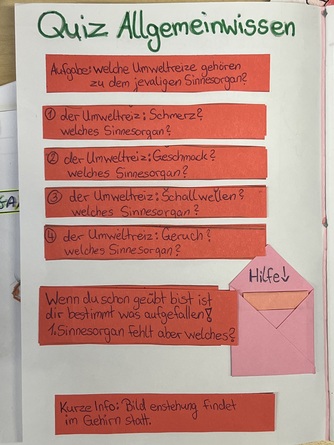 Quiz Allgemeinwissen
Aufgabe: welche Umweltreize gehören
zu dem jeweiligen Sinnesorgan?
① der Umweltreiz: Schmerz?
welches Sinnesorgan?
② der Umweltreiz: Geschmack?
welches Sinnesorgan?
③ der Umweltreiz: Schallwellen?
welches Sinnesorgan?
④ der Umweltreiz: Geruch?
welches Sinnesorgan?
Hilfe↓
Wenn du schon geübt bist ist
dir bestimmt was aufgefallen!
1. Sinnesorgan fehlt aber welches?
Kurze Info: Bild enstehung findet
im Gehirn statt.